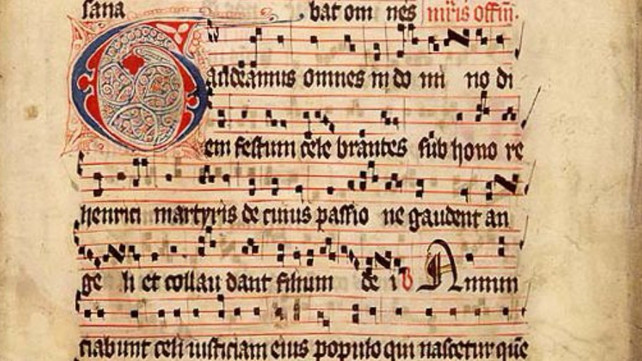 sana bat om nes mris offm.
Gaudeamus omnes in do mi no di
em festum cele brantes sub hono re
henrici martyris de cuius passio ne gaudent an
ge li et collau dant filium de i Annun
ciabunt celi iusticiam eius populo qui nascetur que